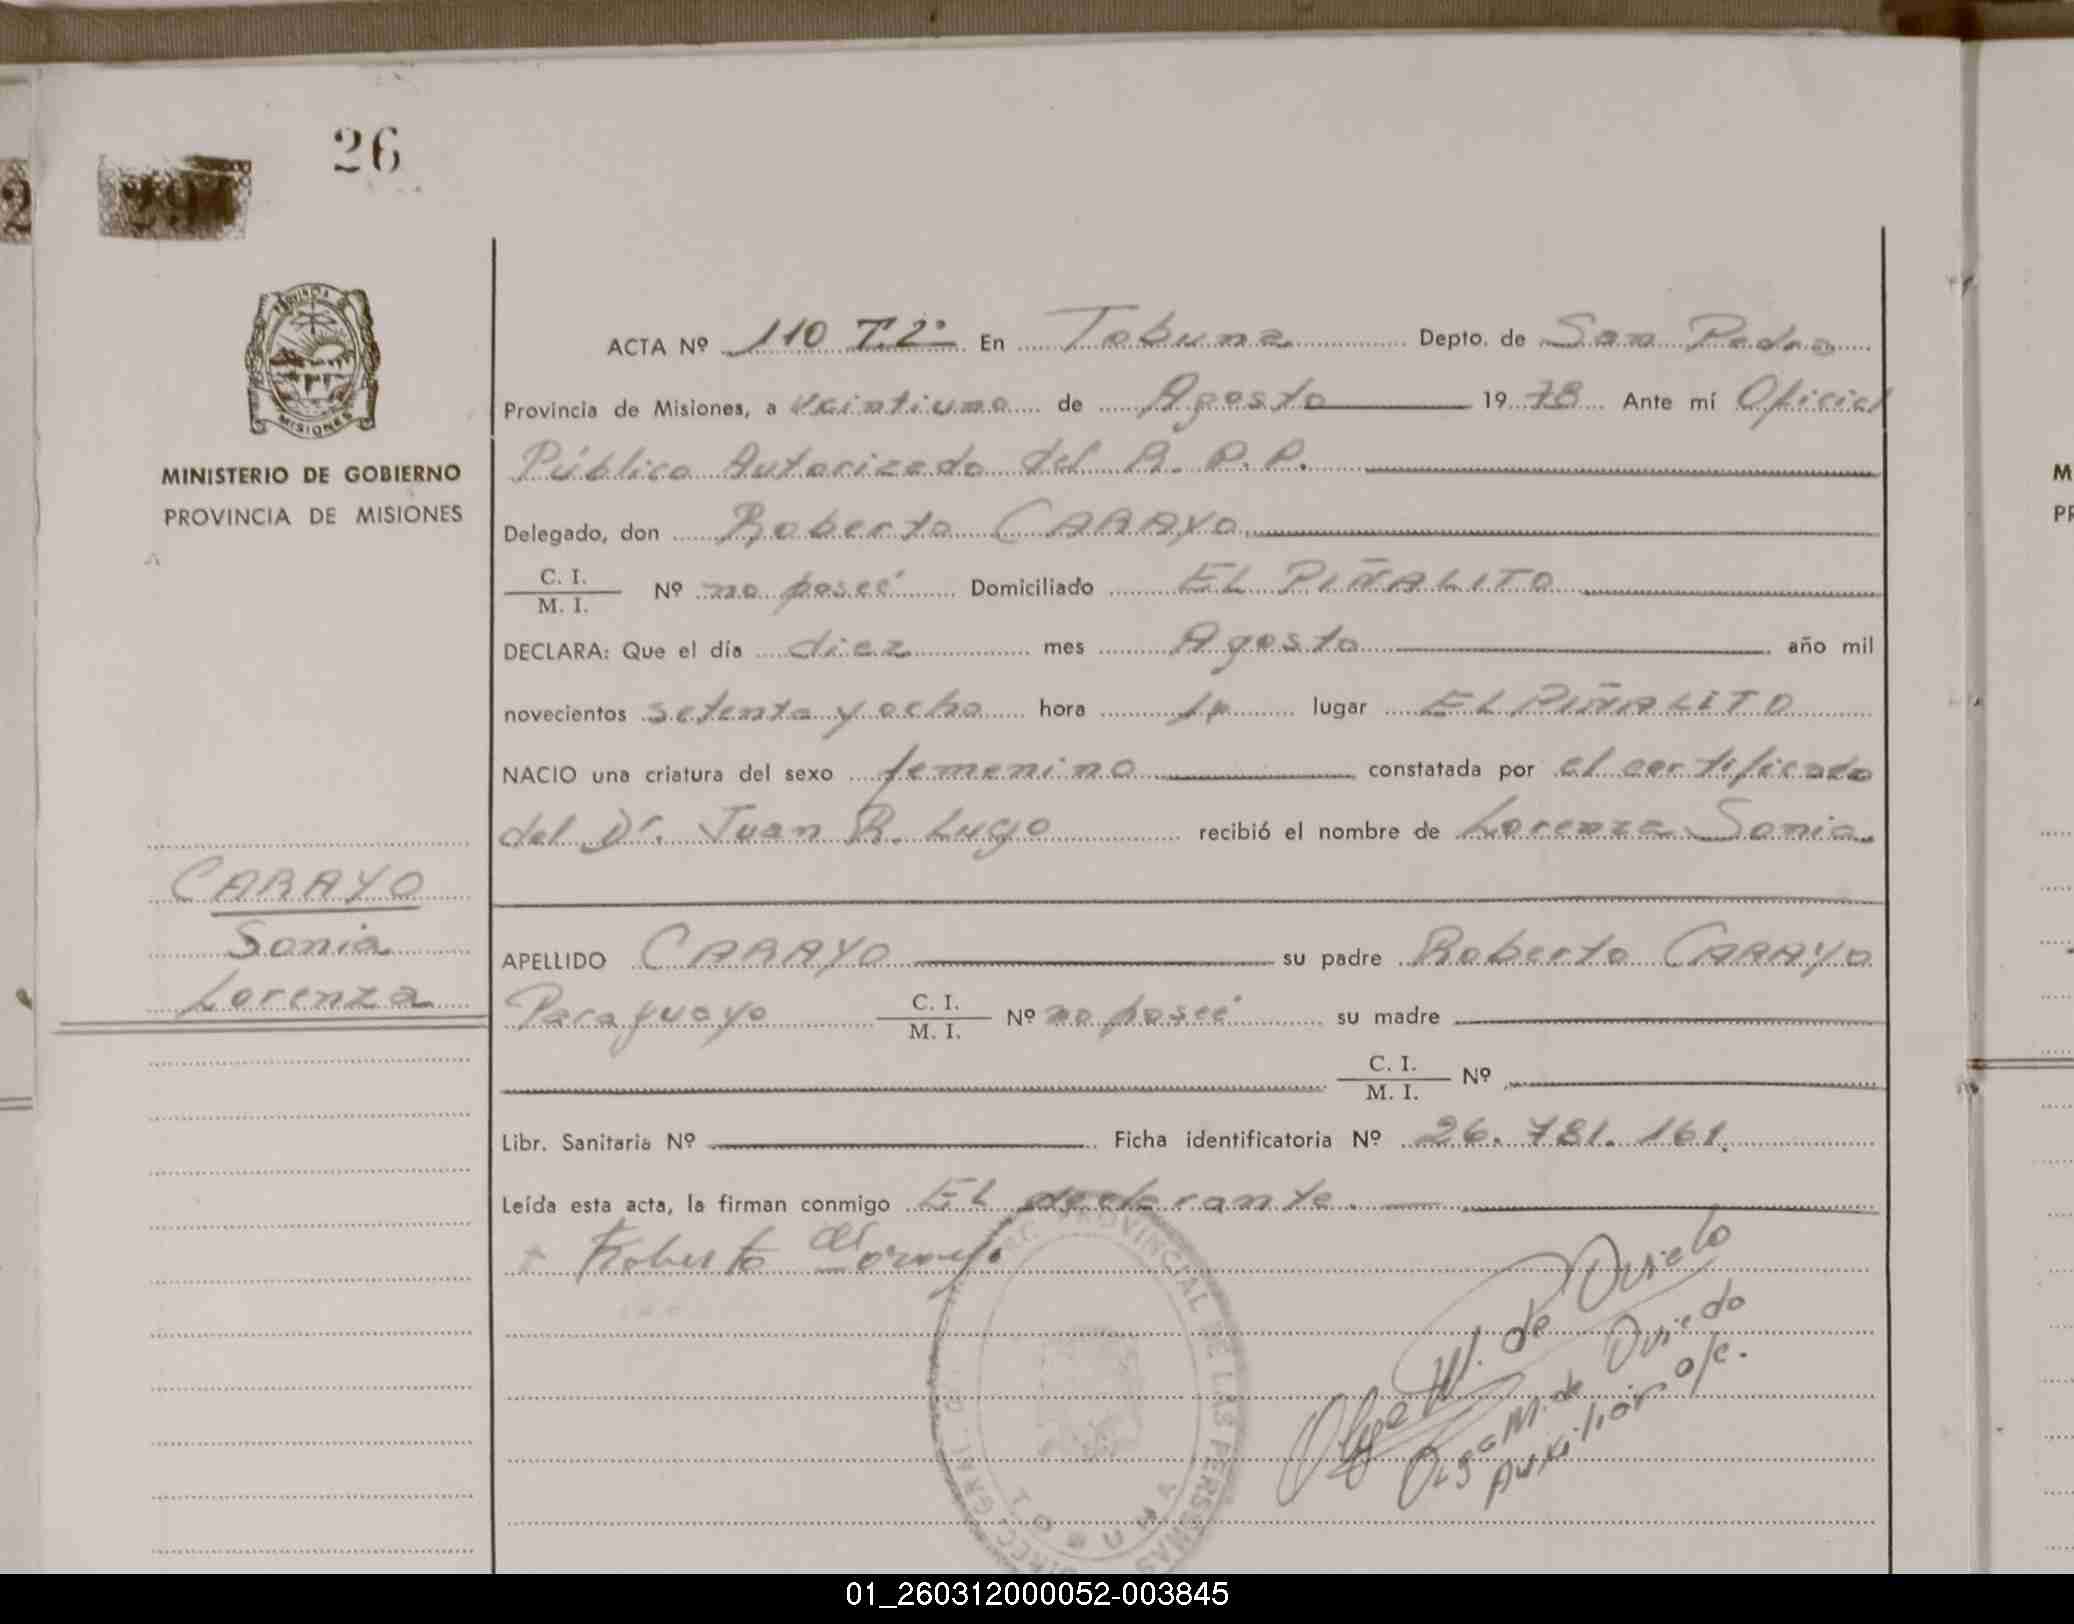 26
294
ACTA Nº 110 T.2º En Tobuna Depto. de San Pedro
Provincia de Misiones, a veintiuno de Agosto 19 78 Ante mí Oficial
Público Autorizado del R. P. P.
MINISTERIO DE GOBIERNO
PROVINCIA DE MISIONES
Delegado, don Roberto CARAYO
C. I.
M. I. Nº no poseé Domiciliado EL PIÑALITO
DECLARA: Que el día diez mes Agosto año mil
novecientos setenta y ocho hora lugar EL PIÑALITO
NACIO una criatura del sexo femenino constatada por el certificado
del Dr. Juan R. Lugo recibió el nombre de Lorenza Sonia
CARAYO
Sonia
Lorenza
APELLIDO CARAYO su padre Roberto CARAYO
Paraguayo C. I.
M. I. Nº no poseé su madre
C. I.
M. I. Nº
Libr. Sanitaria Nº Ficha identificatoria Nº 26.781.161
Leída esta acta, la firman conmigo EL declarante.
Roberto
Olga M. de Oviedo
Olga M. de Oviedo
Auxiliar a/c.
PROVINCIAL DE LAS PERSONAS
TOBUNA
01_260312000052-003845